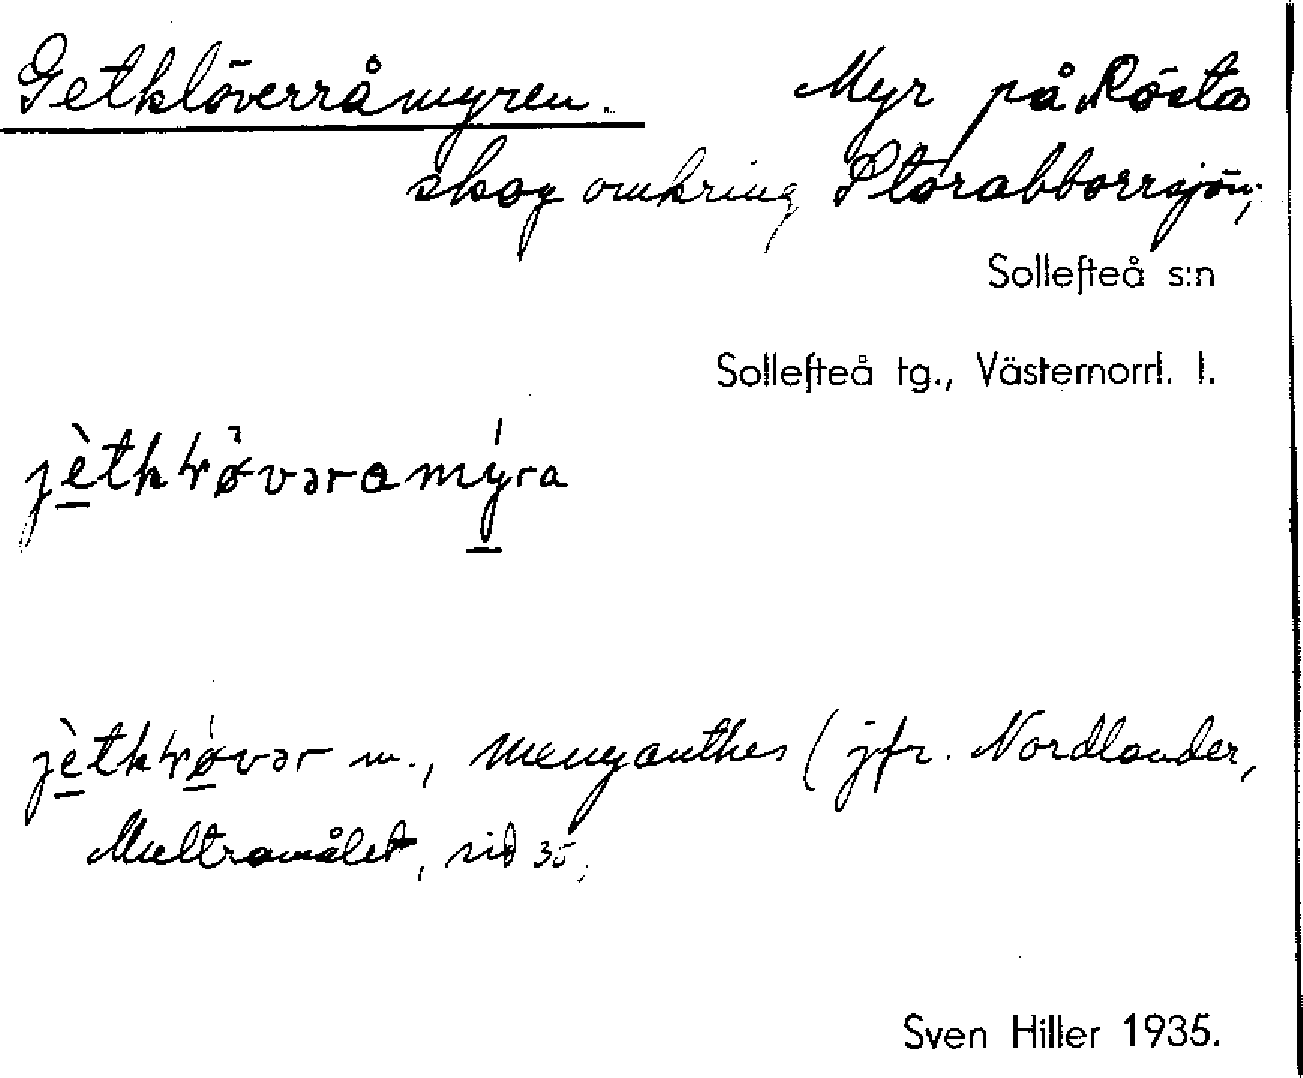 Getklöverråmyren. Myr på Rösta
skog omkring Storabborrsjön;
Sollefteå s:n
Sollefteå tg., Västernorrl. l.
m., Menyanthes (jfr. Nordlander,
Multramålet, sid 35,
Sven Hiller 1935.